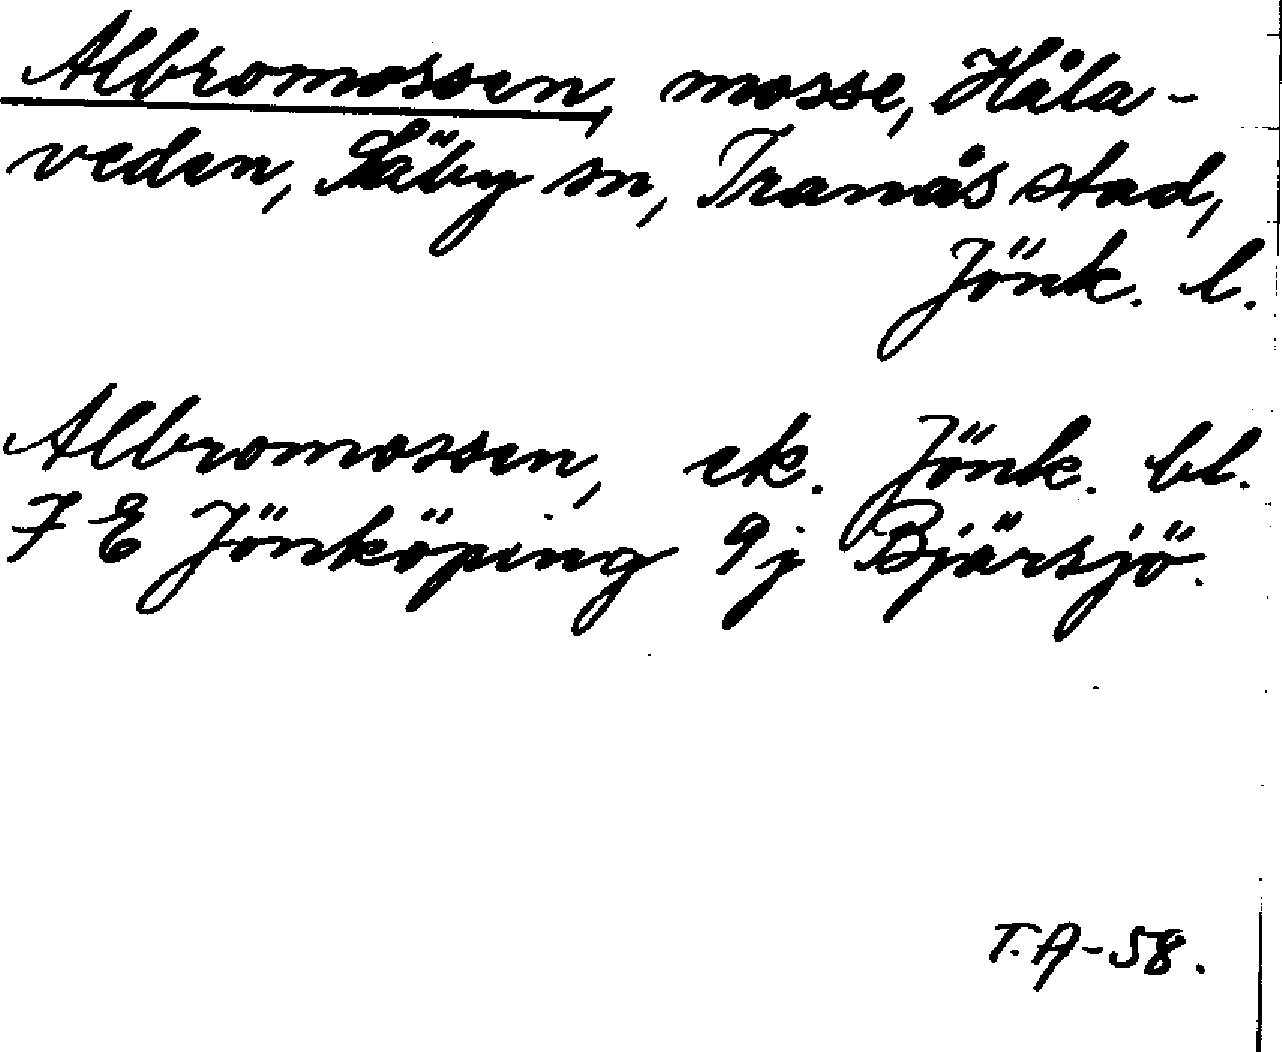 Albromossen, mosse, Håla-
veden, Säby sn, Tranås stad,
Jönk. l.
Albromossen, ek. Jönk. bl.
7 E Jönköping 9j Bjärsjö.
T.A-58.